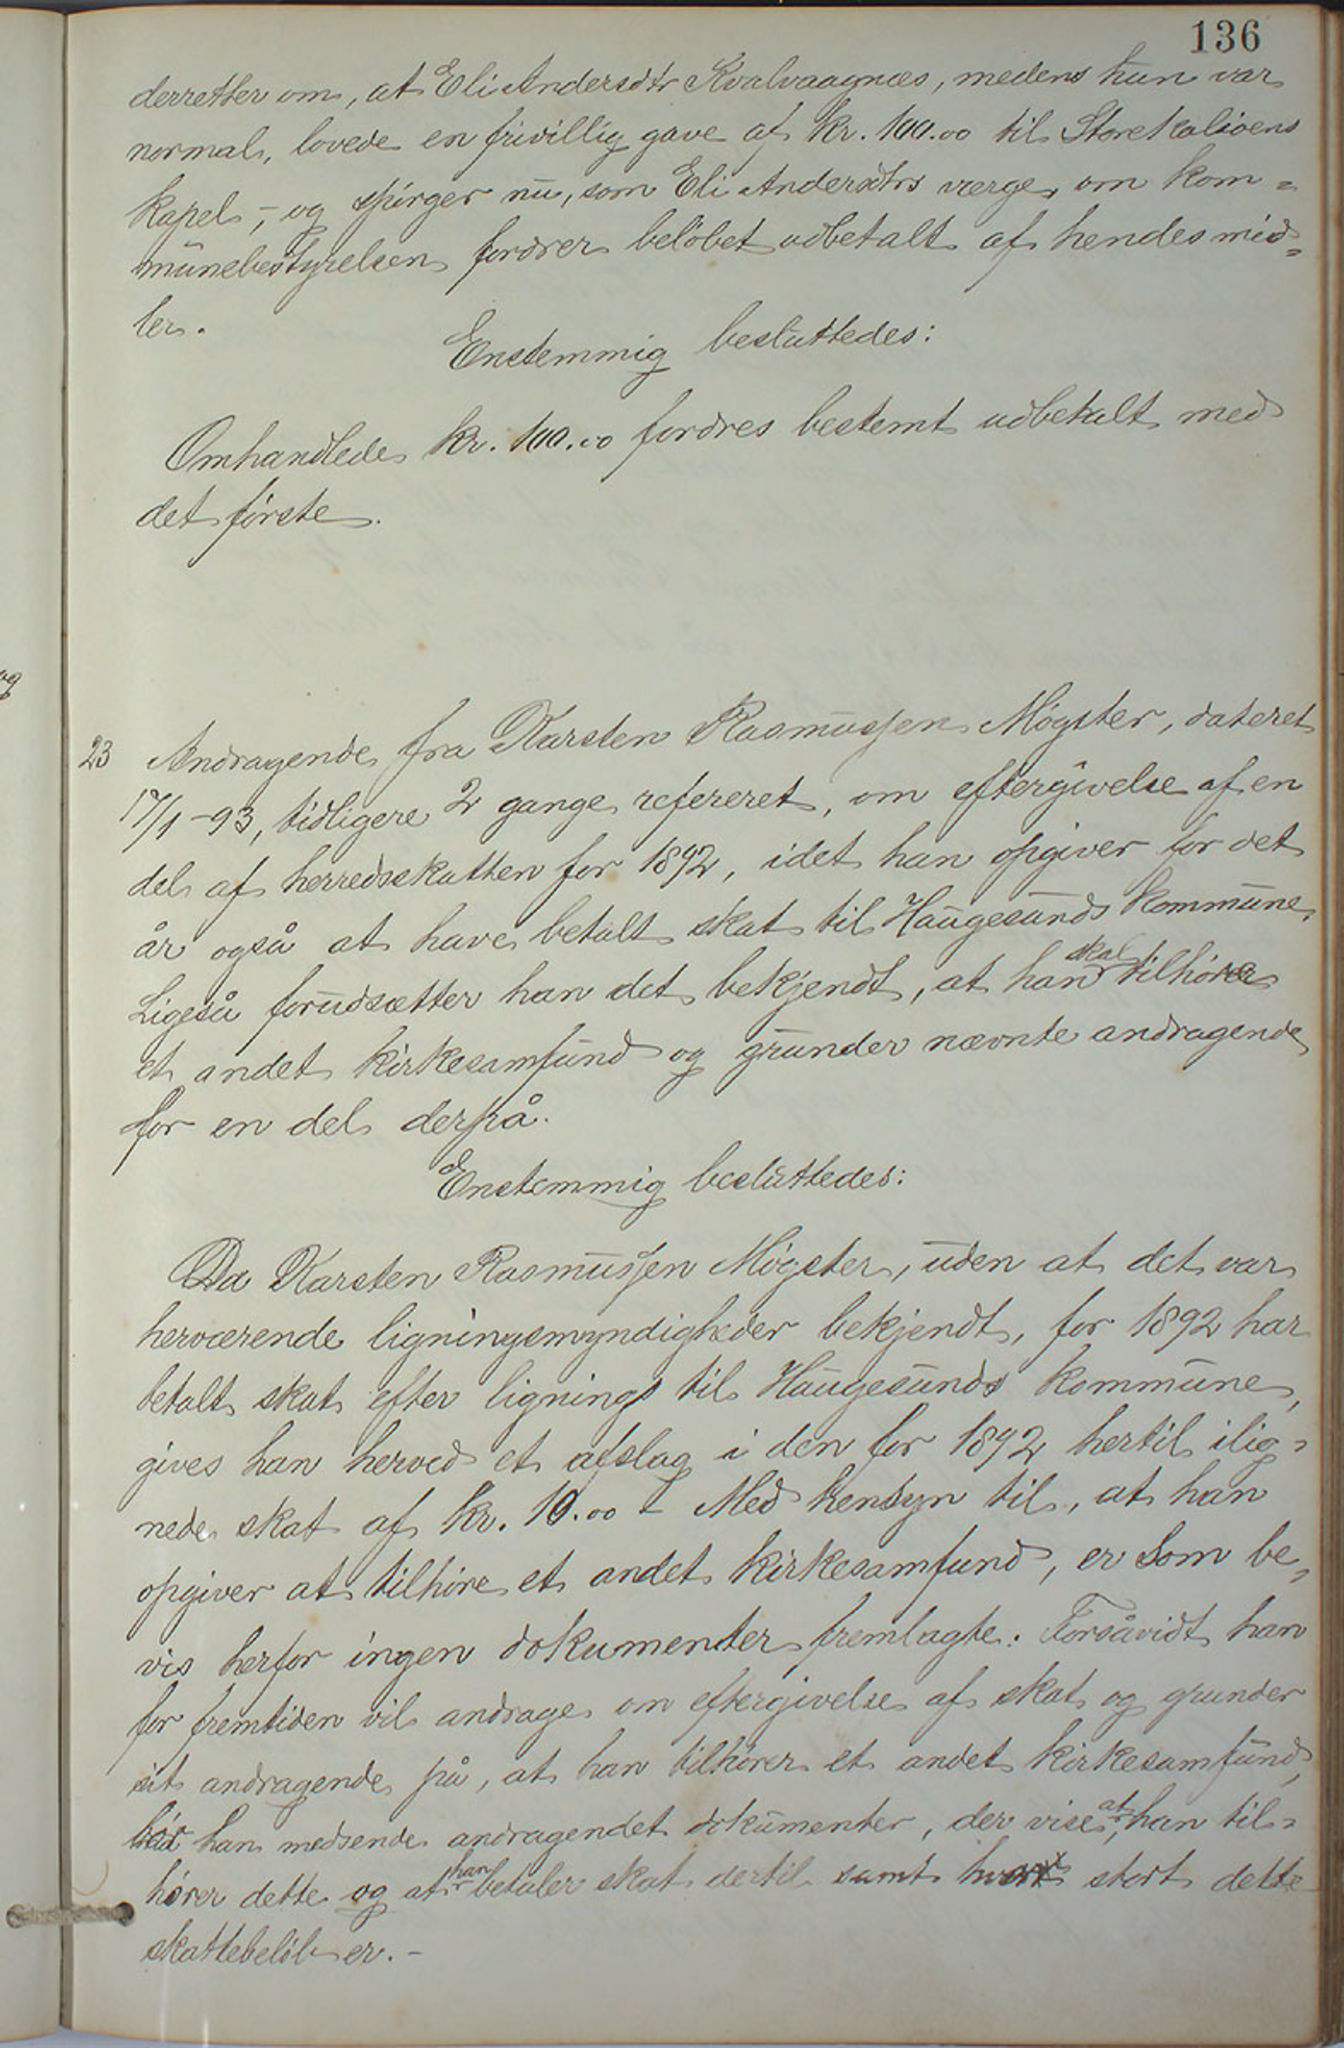 136
derretter om, at Eli Andersdtr Kvalvaagnæs, medens hun var
normal, lovede en frivillig gave af kr. 100.00 til Storekalsöens
kapel, – og spörger nu, som Eli Andersdtrs værge, om kom=
munebestyrelsen fordrer belöbet udbetalt af hendes mid=
ler.
Enstemmig besluttedes:
Omhandlede kr. 100.00 fordres bestemt udbetalt med
det förste.
og
23 Andragende fra Karsten Rasmussen Mögster, dateret
17/1 -93, tidligere 2 gange refereret, om eftergivelse af en
del af herredsskatten for 1892, idet han opgiver for det
år også at have betalt skat til Haugesunds kommune.
Ligeså forudsætter han det bekjendt, at han skal tilhöre
et andet kirkesamfund og grunder nævnte andragende
for en del derpå.
Enstemmig besluttedes:
Da Karsten Rasmussen Mögster, uden at det var
herværende ligningsmyndigheder bekjendt, for 1892 har
betalt skat efter ligning til Haugesunds kommune,
gives han herved et afslag i den for 1892 hertil ilig=
nede skat af kr. 10.00 – Med hensyn til, at han
opgiver at tilhöre et andet kirkesamfund, er som be=
vis herfor ingen dokumenter fremlagte. Forsåvidt han
for fremtiden vil andrage om eftergivelse af skat og grunder
sit andragende på, at han tilhörer et andet kirkesamfund,
bör han medsende andragendet dokumenter, der viser, at han til=
hörer dette og at han betaler skat dertil samt hvor stort dette
skattebelöb er. –